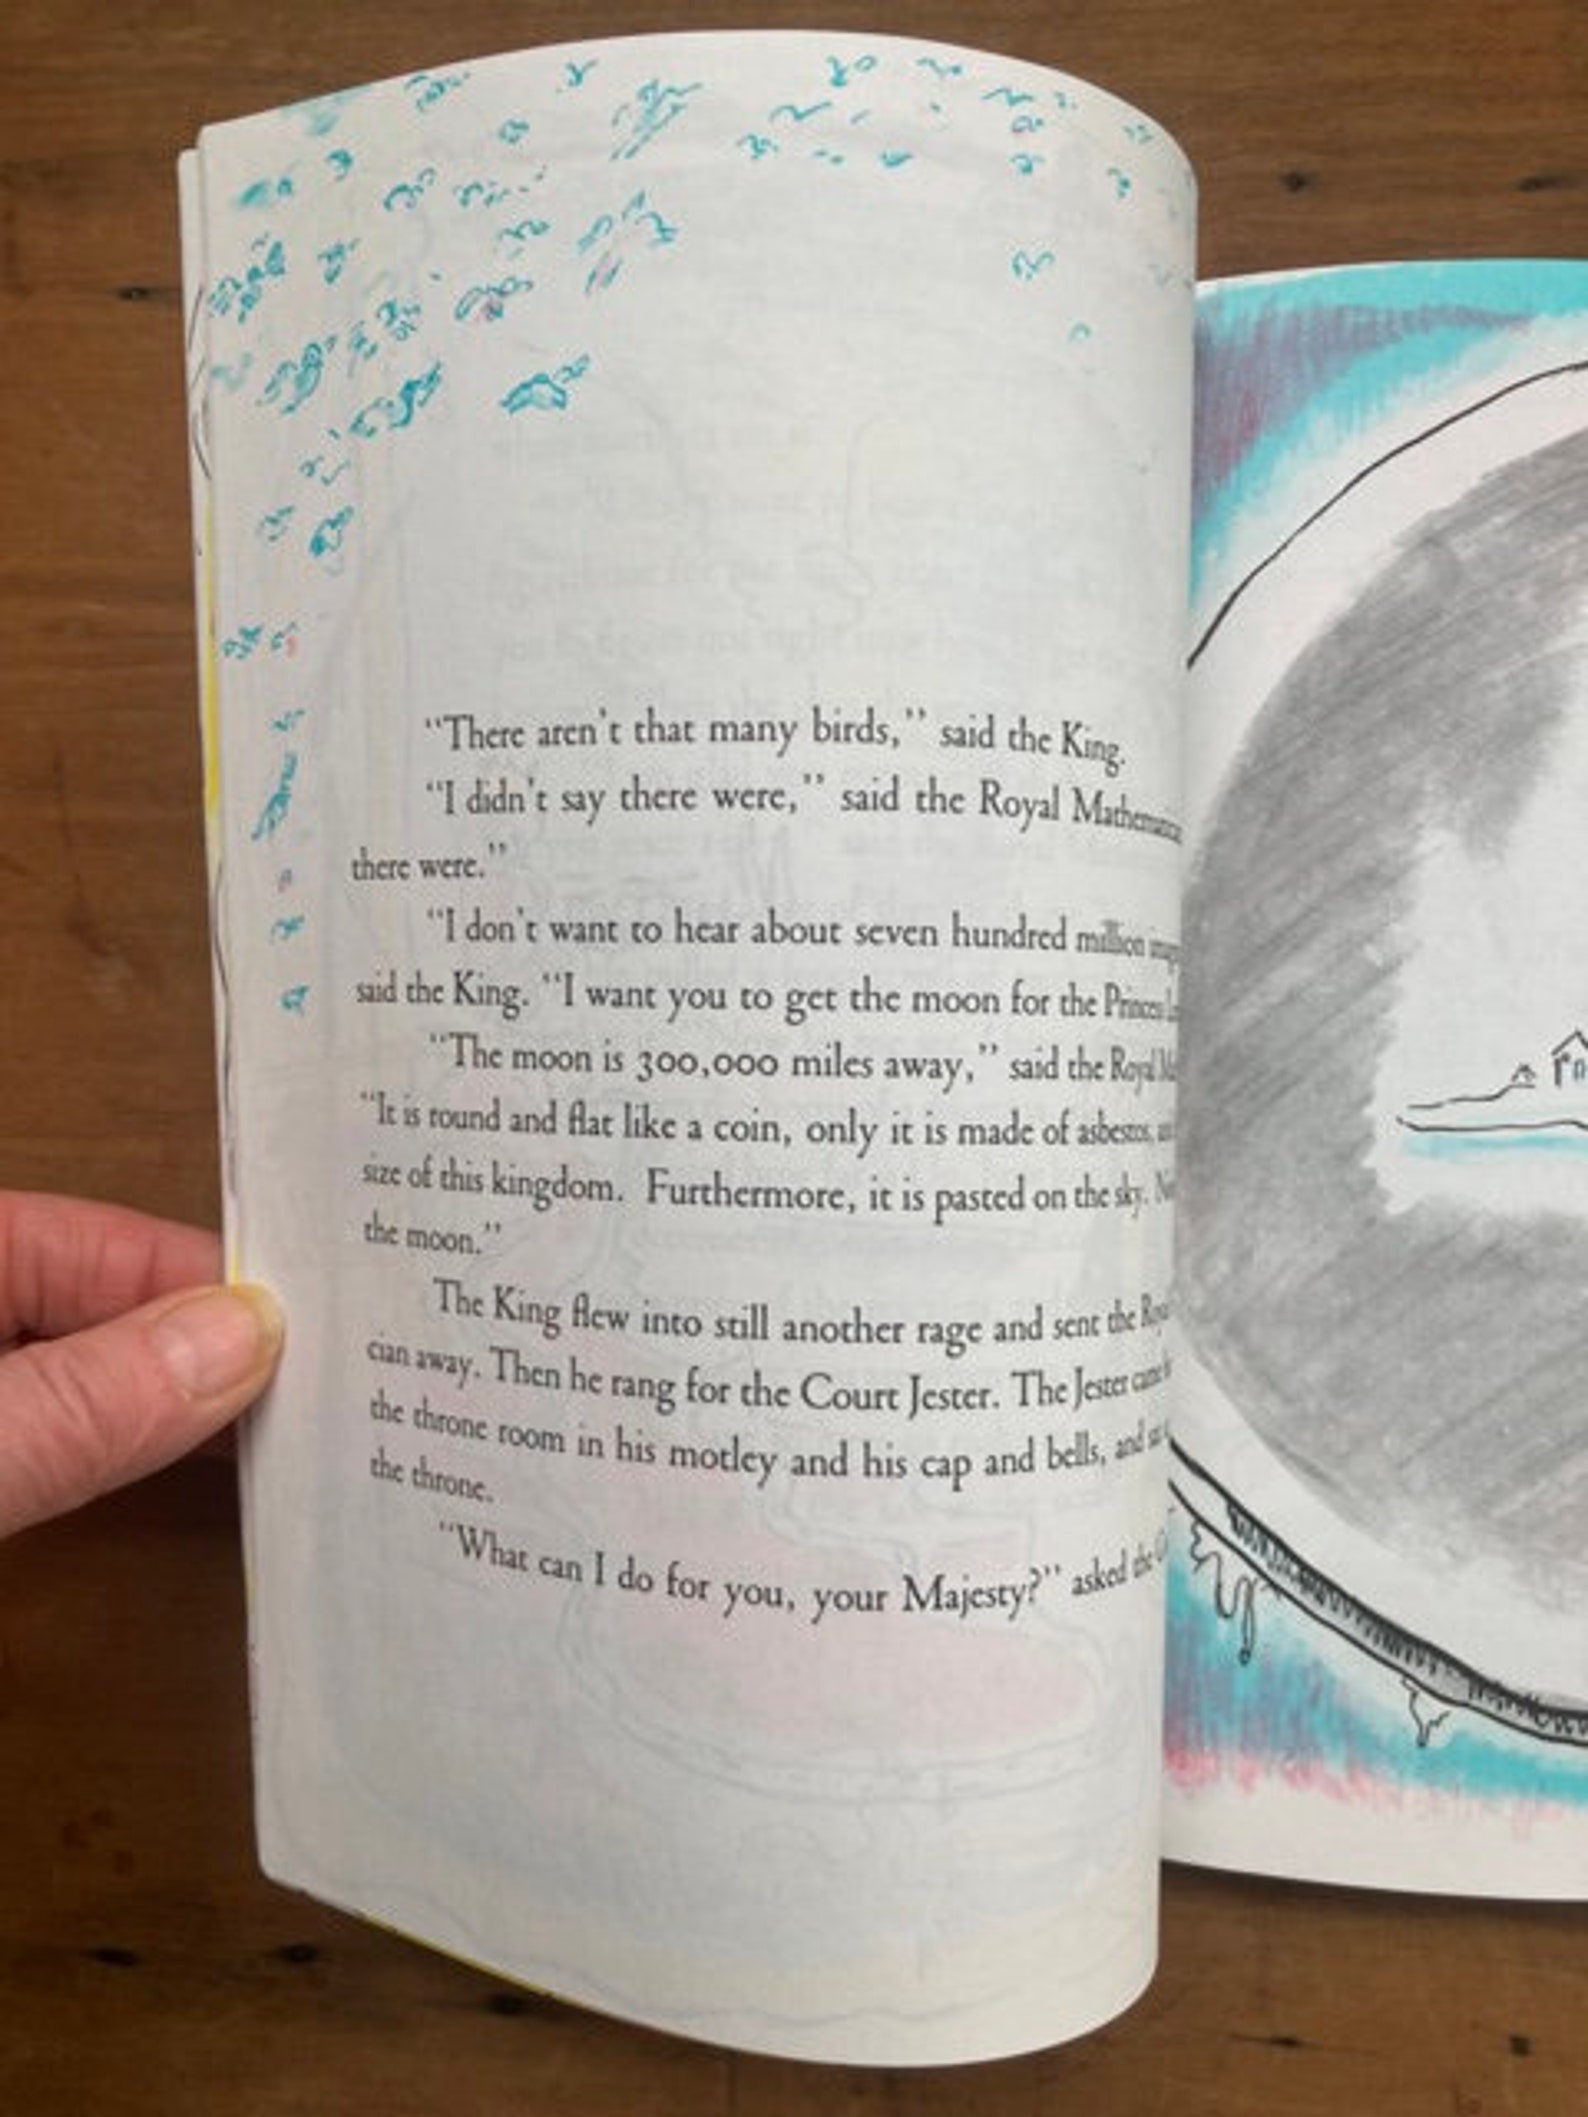 “There aren't that many birds,” said the King.
“I didn't say there were,” said the Royal
there were.”
“I don't want to hear about seven hundred million
said the King. “I want you to get the moon for the Princess
“The moon is 300,000 miles away,” said the Royal
“It is round and flat like a coin, only it is made of asbestos,
size of this kingdom. Furthermore, it is pasted on the sky.
the moon.”
The King flew into still another rage and sent the
cian away. Then he rang for the Court Jester. The Jester came
the throne room in his motley and his cap and bells, and
the throne.
“What can I do for you, your Majesty?” asked the